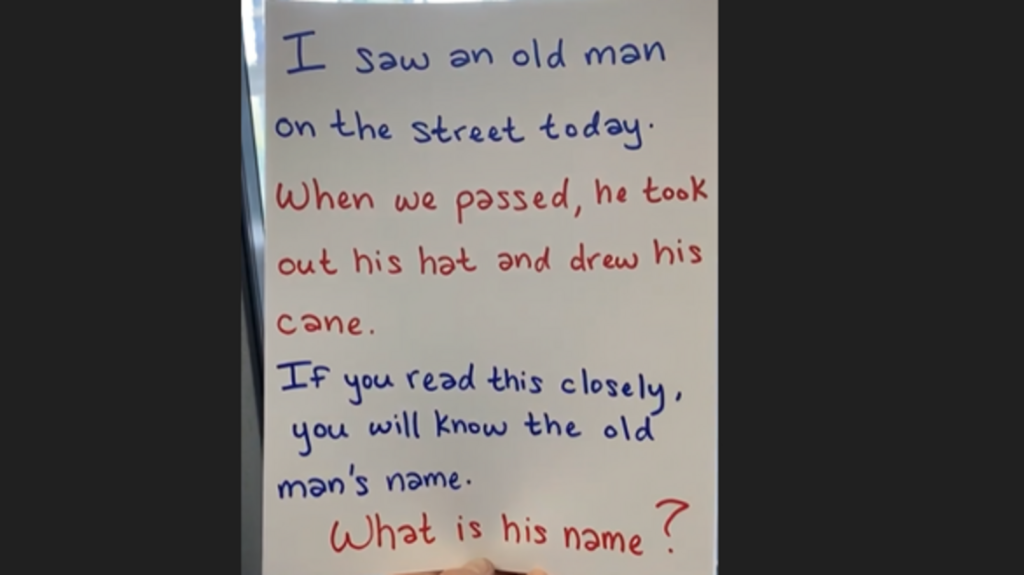 I saw an old man
on the street today.
When we passed, he took
out his hat and drew his
cane.
If you read this closely,
you will know the old
man's name.
What is his name?